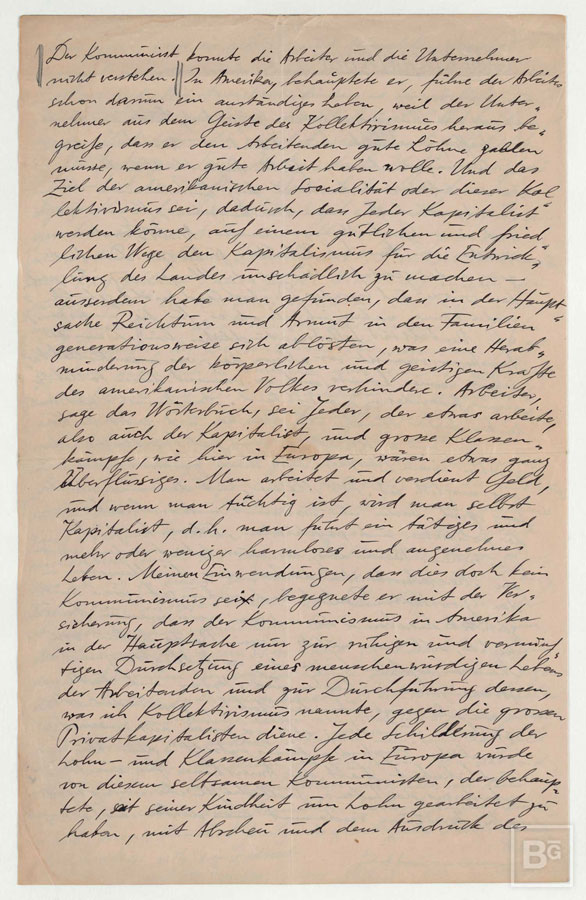 Der Kommunist konnte die Arbeiter und die Unternehmer
nicht verstehen. In Amerika, behauptete er, führe der Arbeiter
schon darum ein anständiges Leben, weil der Unter-
nehmer aus dem Geiste des Kollektivismus heraus be-
greife, dass er den Arbeitenden gute Löhne zahlen
müsse, wenn er gute Arbeit haben wolle. Und das
Ziel der amerikanischen Sozialität oder dieser Kol-
lektivismus sei, dadurch, dass jeder Kapitalist
werden könne, auf einem gütlichen und fried-
lichen Wege den Kapitalismus für die Entwick-
lung des Landes unschädlich zu machen –
ausserdem habe man gefunden, dass in der Haupt-
sache Reichtum und Armut in den Familien
generationsweise sich ablösten, was eine Herab-
minderung der körperlichen und geistigen Kräfte
des amerikanischen Volkes verhindere. Arbeiter,
sage das Wörterbuch, sei Jeder, der etwas arbeite,
also auch der Kapitalist, und grosse Klassen-
kämpfe, wie hier in Europa, wären etwas ganz
Überflüssiges. Man arbeitet und verdient Geld,
und wenn man tüchtig ist, wird man selbst
Kapitalist, d.h. man führt ein tätiges und
mehr oder weniger harmloses und angenehmes
Leben. Meinen Einwendungen, dass dies doch kein
Kommunismus sei, begegnete er mit der Ver-
sicherung, dass der Kommunismus in Amerika
in der Hauptsache nur zur ruhigen und vernünf-
tigen Durchsetzung eines menschenwürdigen Lebens
der Arbeitenden und zur Durchführung dessen,
was ich Kollektivismus nannte, gegen die grossen
Privatkapitalisten diene. Jede Schilderung der
Lohn- und Klassenkämpfe in Europa wurde
von diesem seltsamen Kommunisten, der behaup-
tete, seit seiner Kindheit um Lohn gearbeitet zu
haben, mit Abscheu und dem Ausdruck des
BG